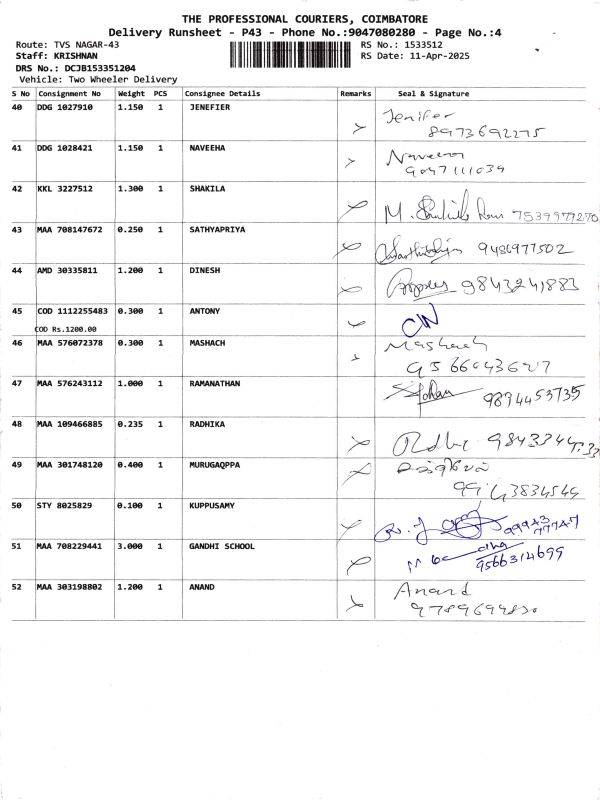 THE PROFESSIONAL COURIERS, COIMBATORE
Delivery Runsheet - P43 - Phone No.:9047080280 - Page No.:4
Route: TVS NAGAR-43 RS No.: 1533512
Staff: KRISHNAN RS Date: 11-Apr-2025
DRS No.: DCJB153351204
Vehicle: Two Wheeler Delivery
S No Consignment No Weight PCS Consignee Details Remarks Seal & Signature
40 DDG 1027910 1.150 1 JENEFIER Jenifer
8973692275
41 DDG 1028421 1.150 1 NAVEEHA Naveena
9047111039
42 KKL 3227512 1.300 1 SHAKILA M. 7539979270
43 MAA 708147672 0.250 1 SATHYAPRIYA 9486977502
44 AMD 30335811 1.200 1 DINESH 9843241883
45 COD 1112255483 0.300 1 ANTONY
COD Rs.1200.00
46 MAA 576072378 0.300 1 MASHACH Mashach
47 MAA 576243112 1.000 1 RAMANATHAN 9894453735
48 MAA 109466885 0.235 1 RADHIKA
49 MAA 301748120 0.400 1 MURUGAQPPA
50 STY 8025829 0.100 1 KUPPUSAMY 99943
77747
51 MAA 708229441 3.000 1 GANDHI SCHOOL
9566314699
52 MAA 303198802 1.200 1 ANAND Anand